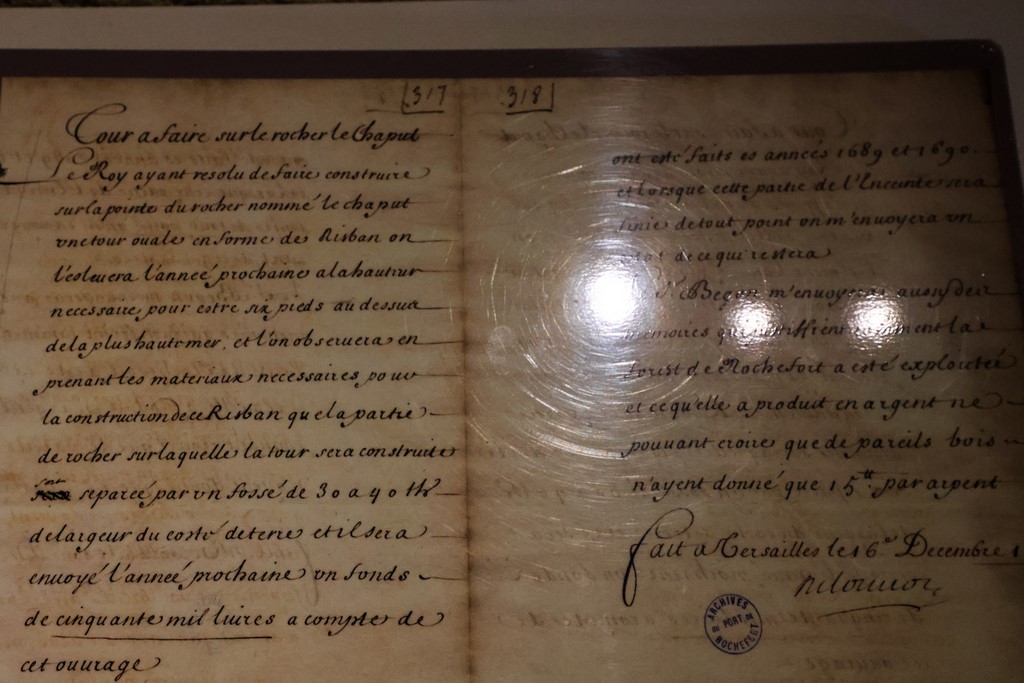 317
Tour a faire sur le rocher le Chaput
Le Roy ayant resolu de faire construire
sur la pointe du rocher nommé le chaput
vne tour ouale en forme de Risban on
l'esleuera l'anneé prochaine a la hauteur
necessaire pour estre six pieds au dessus
de la plus haute mer, et l'on obseruera en
prenant les materiaux necessaires pour
la construction de ce Risban que la partie
de rocher sur laquelle la tour sera construite
soit separeé par vn fossé de 30 a 40 tt
de largeur du costé de terre et il sera
enuoyé l'anneé prochaine vn fonds
de cinquante mil liures a compte de
cet ouurage
318
ont esté faits es années 1689 et 1690.
et lorsque cette partie de l'Enceinte sera
finie de tout point on m'enuoyera vn
estat de ce qui restera
Sr. Begon m'enuoyera aussy des
memoires qui comment la
forest de Rochefort a esté exploiteé
et ce qu'elle a produit en argent ne
pouuant croire que de pareils bois
n'ayent donné que 15tt. par arpent
fait a Versailles le 16e Decembre
ARCHIVES
PORT
DE
DE
ROCHEFORT